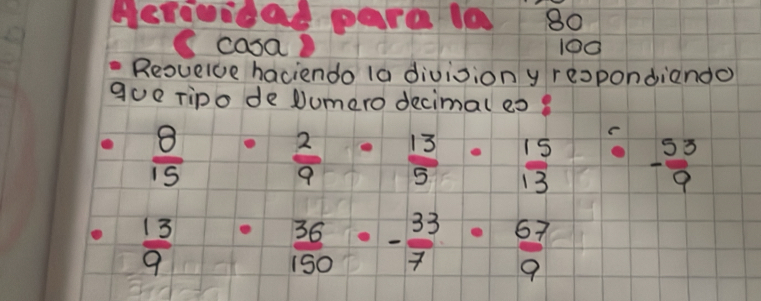 Actividad para la 80
( casa ) 100
• Resuelve haciendo la division y respondiendo
que Tipo de Numero decimal es:
• 8/15 • 2/9 • 13/5 • 15/13 • -53/9
• 13/9 • 36/150 • -33/7 • 67/9